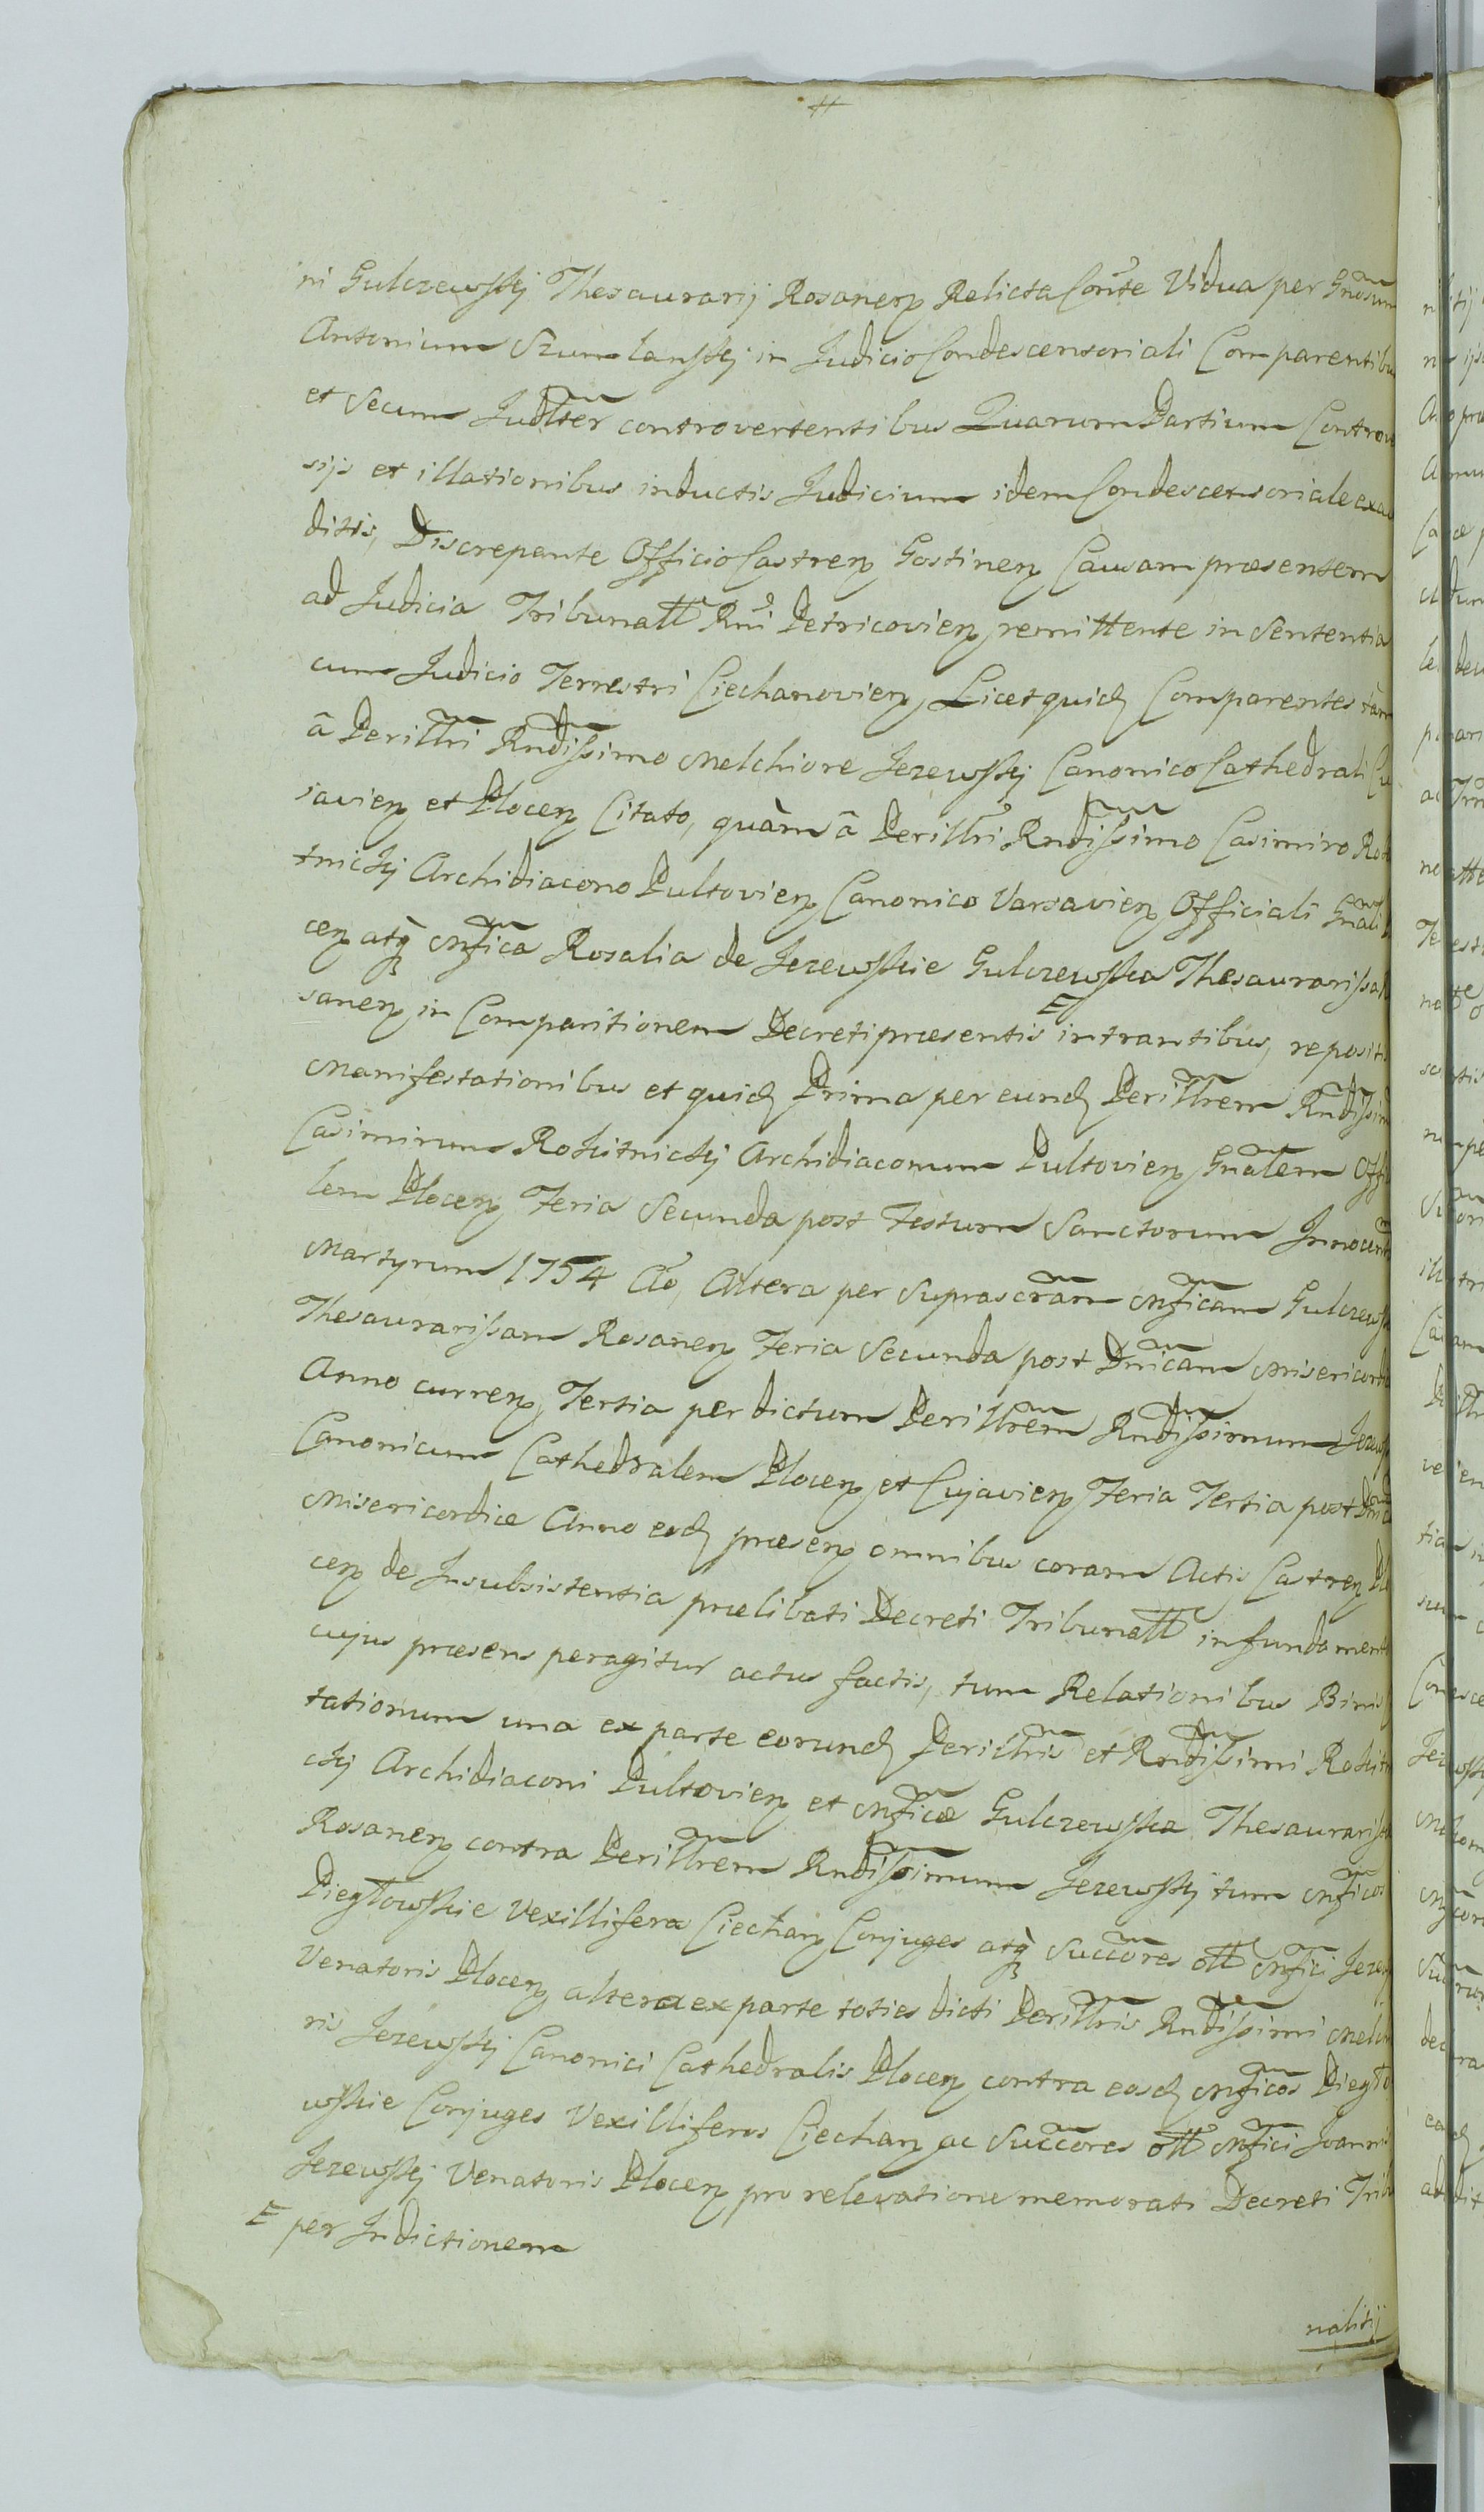 ni Gulczewskij Thesaurarij Rosanen Relicta Conte Vidua per Gnosum
Antonium Szumlanskij in Judicio Condescensoriali Comparentibu
et Secum Judlter controvertentibus Quarum Partium Controv
sijs et illationibus inductis Judicium idem Condescensoriale exau
ditis, Discrepante Officio Castren Gostinen Causam præsentem
ad Judicia Tribunall Rni Petricovien remittente in Sententia
cum Judicio Terrestri Ciechanovien, Licet quid Comparentes tam
â Perillri Rndissimo Melchiore Jezewskij Canonico Cathedrali Cu
javien et Plocen Citato, quàm â Perillri Rndissimo Casimiro Rok
itnickij Archidiacono Pultovien Canonico Varsavien Officiali Gnali
cen atq Mfica Rosalia de Jezewskie Gulczewska Thesaurarissa
sanen in Comparitionem Decreti præsentis E intrantibus, reposit
Manifestationibus et quid Prima per eund Perillrem Rndissim
Casimirum Rokitnickij Archidiaconum Pultovien Gnalem Offi
lem Plocen Feria Secunda post Festum Sanctorum Innocent
Martyrum 1754 Ao, Altera per Suprascram Mficam Gulczews
Thesaurarissam Rosanen Feria Secunda post Dnicam Misericordi
Anno curren, Tertia per dictum Perillrem Rndissimum Jezews
Canonicum Cathedralem Plocen et Cujavien Feria Tertia post Dnica
Misericordiæ Anno eod præsen omnibus coram Actis Castren Pl
cen de Insubsistentia prælibati Decreti Tribunall in fundament
cujus præsens peragitur actus factis, tum Relationibus Binis
tationum una ex parte eorund Perillris et Rndissimi Rokit
ckij Archidiaconi Pultovien et Mficæ Gulczewska Thesauraris
Rosanen contra Perillrem Rndissimum Jezewskij tum Mficos
Pieglowskie Vexillifera Ciechan Conjuges atq Succores oll Mfici Jezew
Venatoris Plocen altera ex parte toties dicti Perillris Rndissimi Melch
ris Jezewskij Canonici Cathedralis Plocen contra eosd Mficos Pieglo
wskie Conjuges Vexilliferos Ciechan ac Succores oll Mfici Joannis
Jezewskij Venatoris Plocen pro relevatione memorati Decreti Trib
E per Indictionem
nalitij